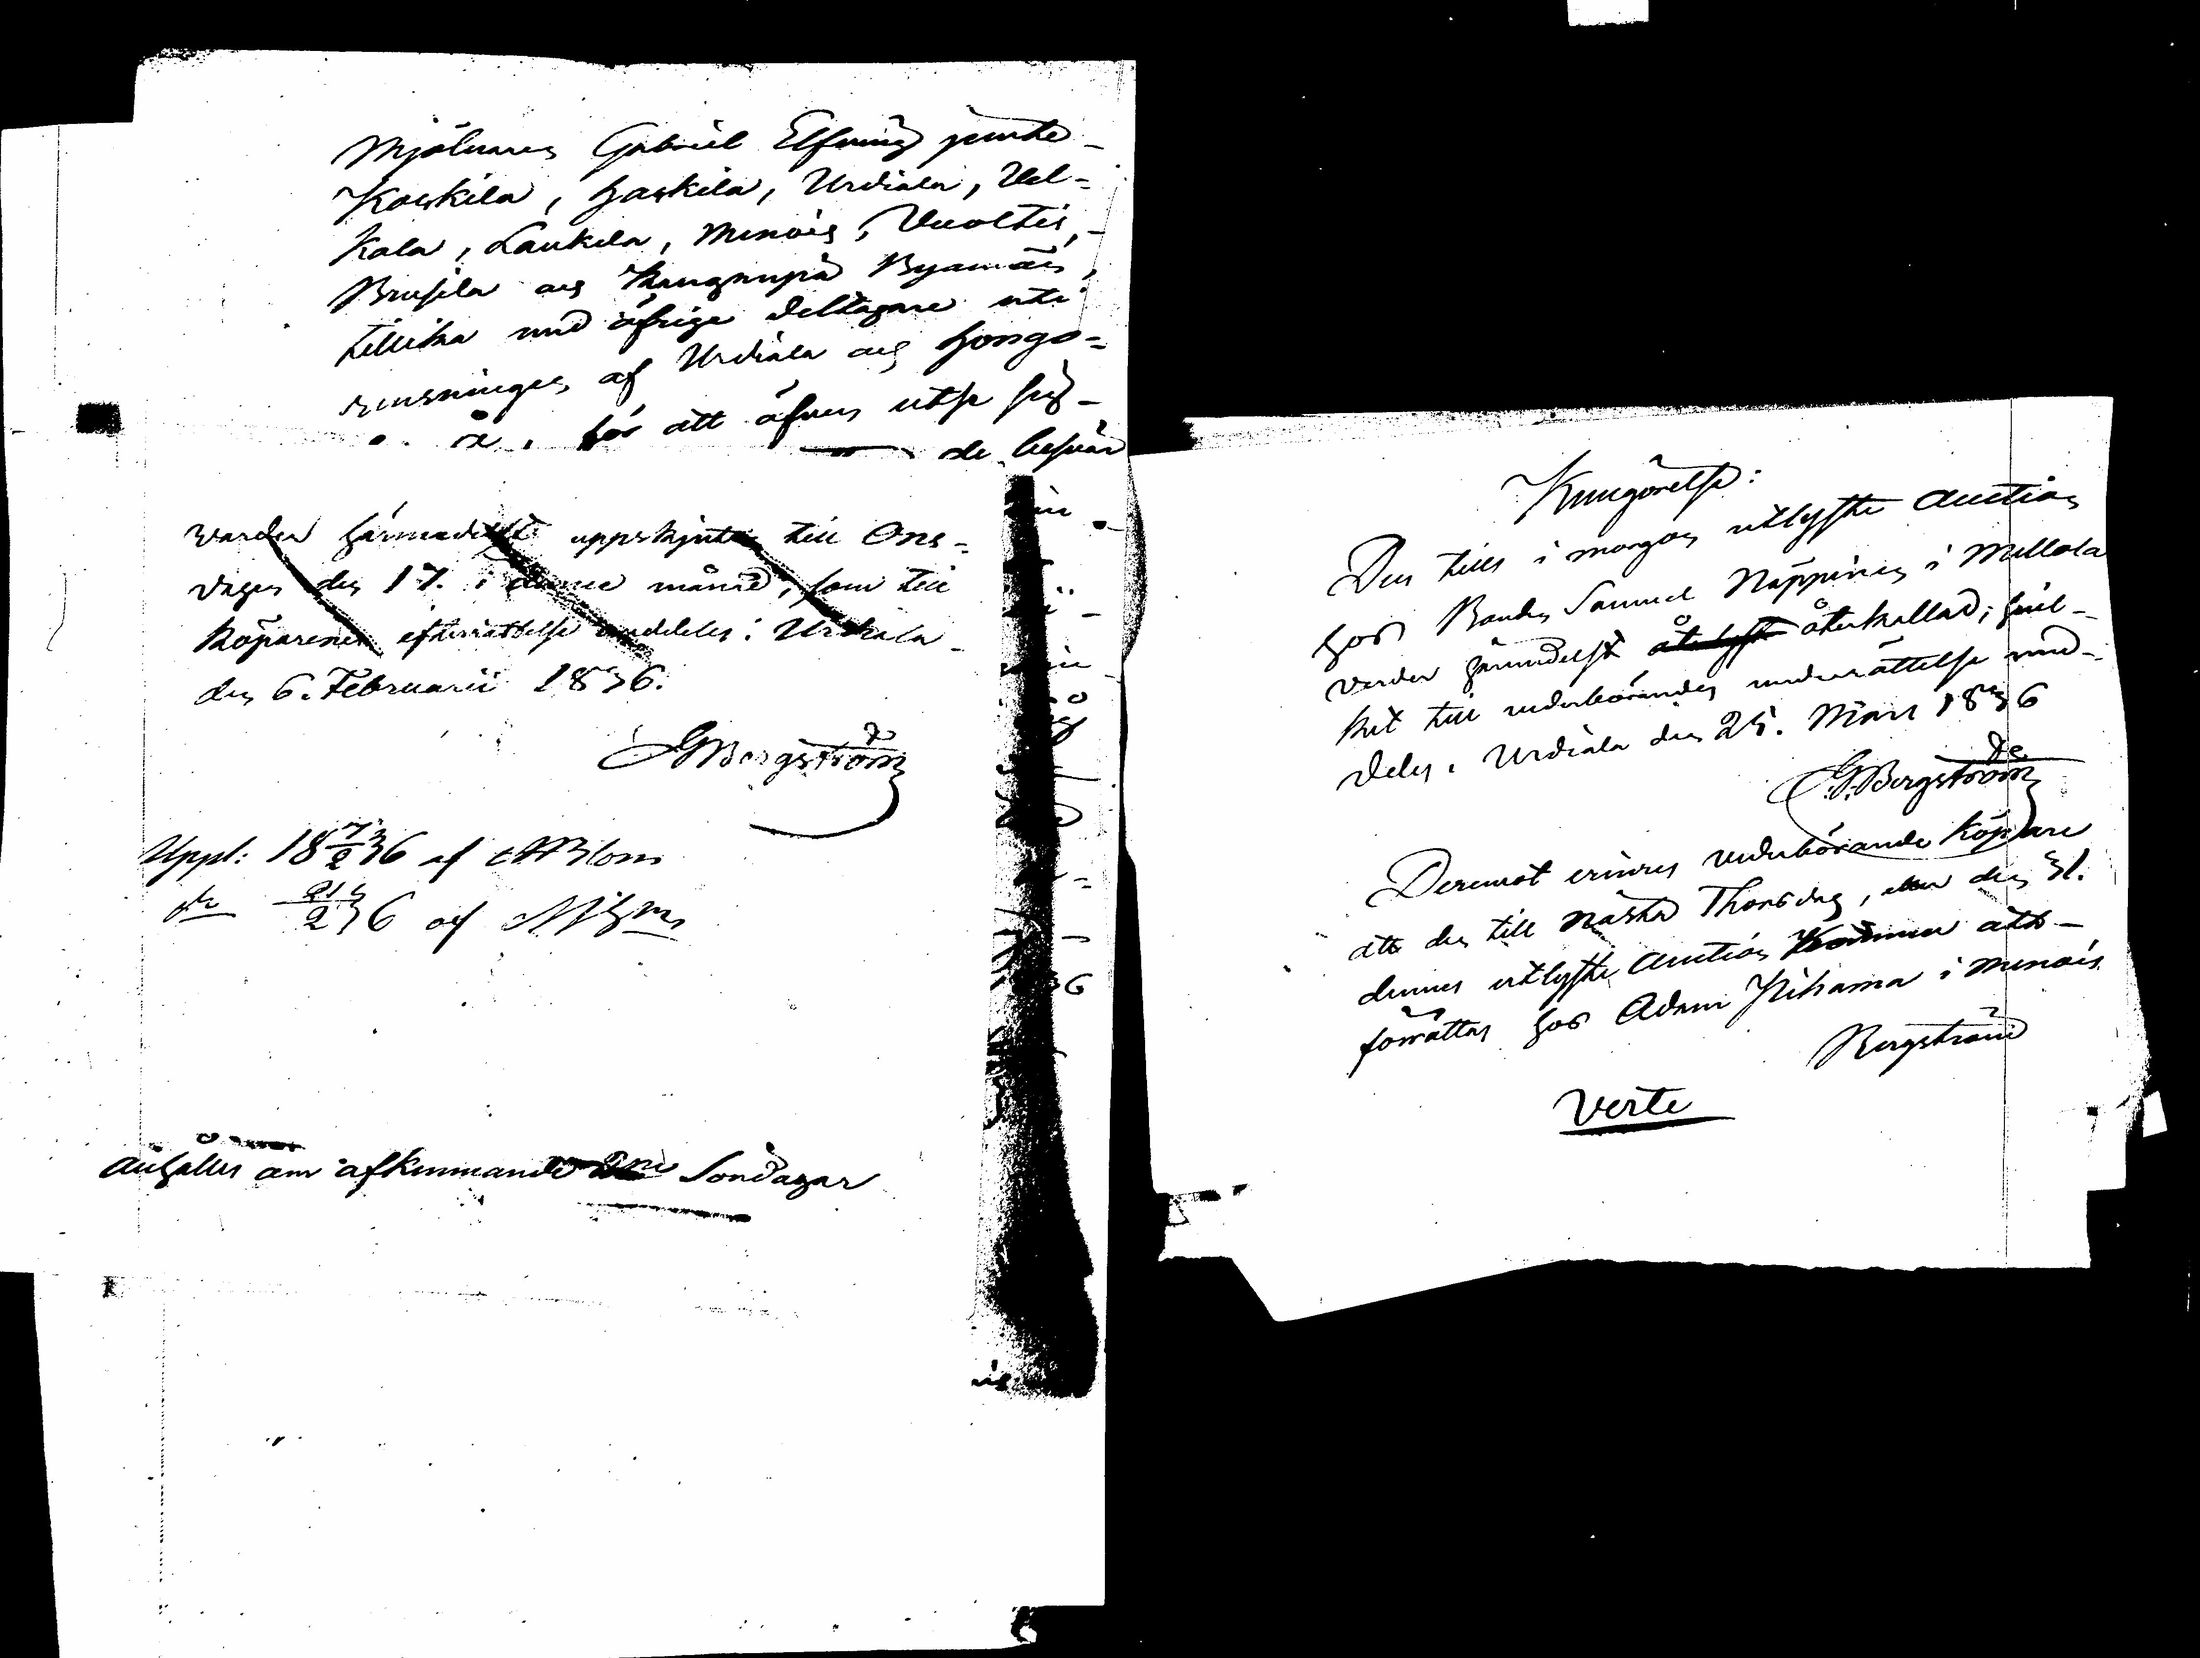 Mjölnaren Gabriel Elfving jemte
Koskila, Haskila, Urdiala, Vel-
kala, Laukela, Menois, Vuoltis,
Brusila och Kangenpää Byamän,
tillika med öfrige deltagare uti
rensningen af Urdiala och Honga-
för att äfven utse
de besvär
warder härmedelst uppskjuten till Ons-
dagen den 17. i denne månad, som till
köparenes efterrättelse meddeles: Urdiala
den 6. Februarii 1836.
G Bergström
Uppl: 18 7/2 36 af
do 21/2 36 af
Anhålles om afkunnande Söndagar
Kungörelse:
Den till i morgon utlyste Auction
hos Bonden Samuel Näppinen i Mellola
varder härmedelst återkallad; hvil-
ket till vederbörandes underrättelse med-
deles. Urdiala den 25. Mars 1836
G. Bergström
Deremot erinres vederbörande Köpare
att den till nästa Thorsdag, den 31.
dennes utlyste Auction kommer att
förrättas hos Adam Kihama i Menois
Bergström
Verte